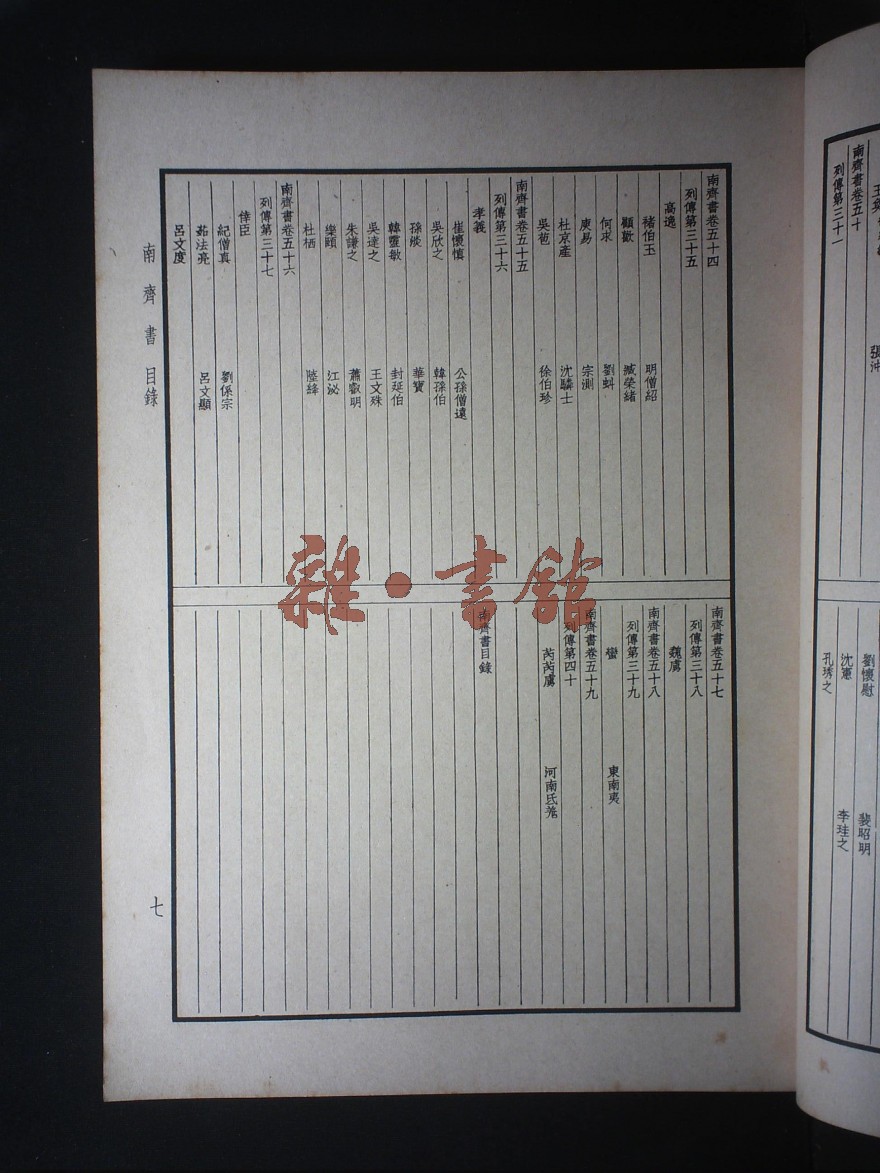 張沖
南齊書卷五十
列傳第三十一
劉懷慰 裴昭明
沈憲 李珪之
孔琇之
南齊書卷五十四
列傳第三十五
高逸
褚伯玉 明僧紹
顧歡 臧榮緒
何求 劉虯
庾易 宗測
杜京產 沈驎士
吳苞 徐伯珍
南齊書卷五十五
列傳第三十六
孝義
崔懷慎 公孫僧遠
吳欣之 韓孫伯
孫 華寶
韓靈敏 封延伯
吳達之 王文殊
朱謙之 蕭叡明
樂頤 江泌
杜栖 陸絳
南齊書卷五十六
列傳第三十七
倖臣
紀僧真 劉係宗
茹法亮 呂文顯
呂文度
南齊書卷五十七
列傳第三十八
魏虜
南齊書卷五十八
列傳第三十九
蠻 東南夷
南齊書卷五十九
列傳第四十
芮芮虜 河南氐羌
南齊書目錄
南齊書 目錄
七
雜·書館